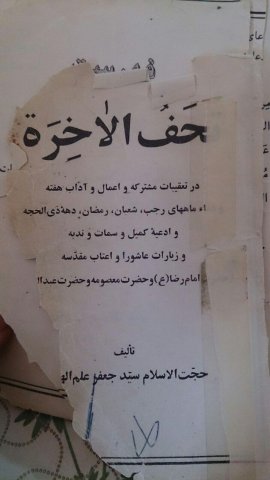 حَفُ الاٰخِرَة
در تعقیبات مشترکه و اعمال و آداب هفته
ماههای رجب، شعبان، رمضان، دههٔ ذی الحجه
و ادعیهٔ کمیل و سمات و ندبه
و زیارات عاشورا و اعتاب مقدّسه
امام رضا (ع) و حضرت معصومه و حضرت عبدال
تألیف
حجّت الاسلام سیّد جعفر علم اله